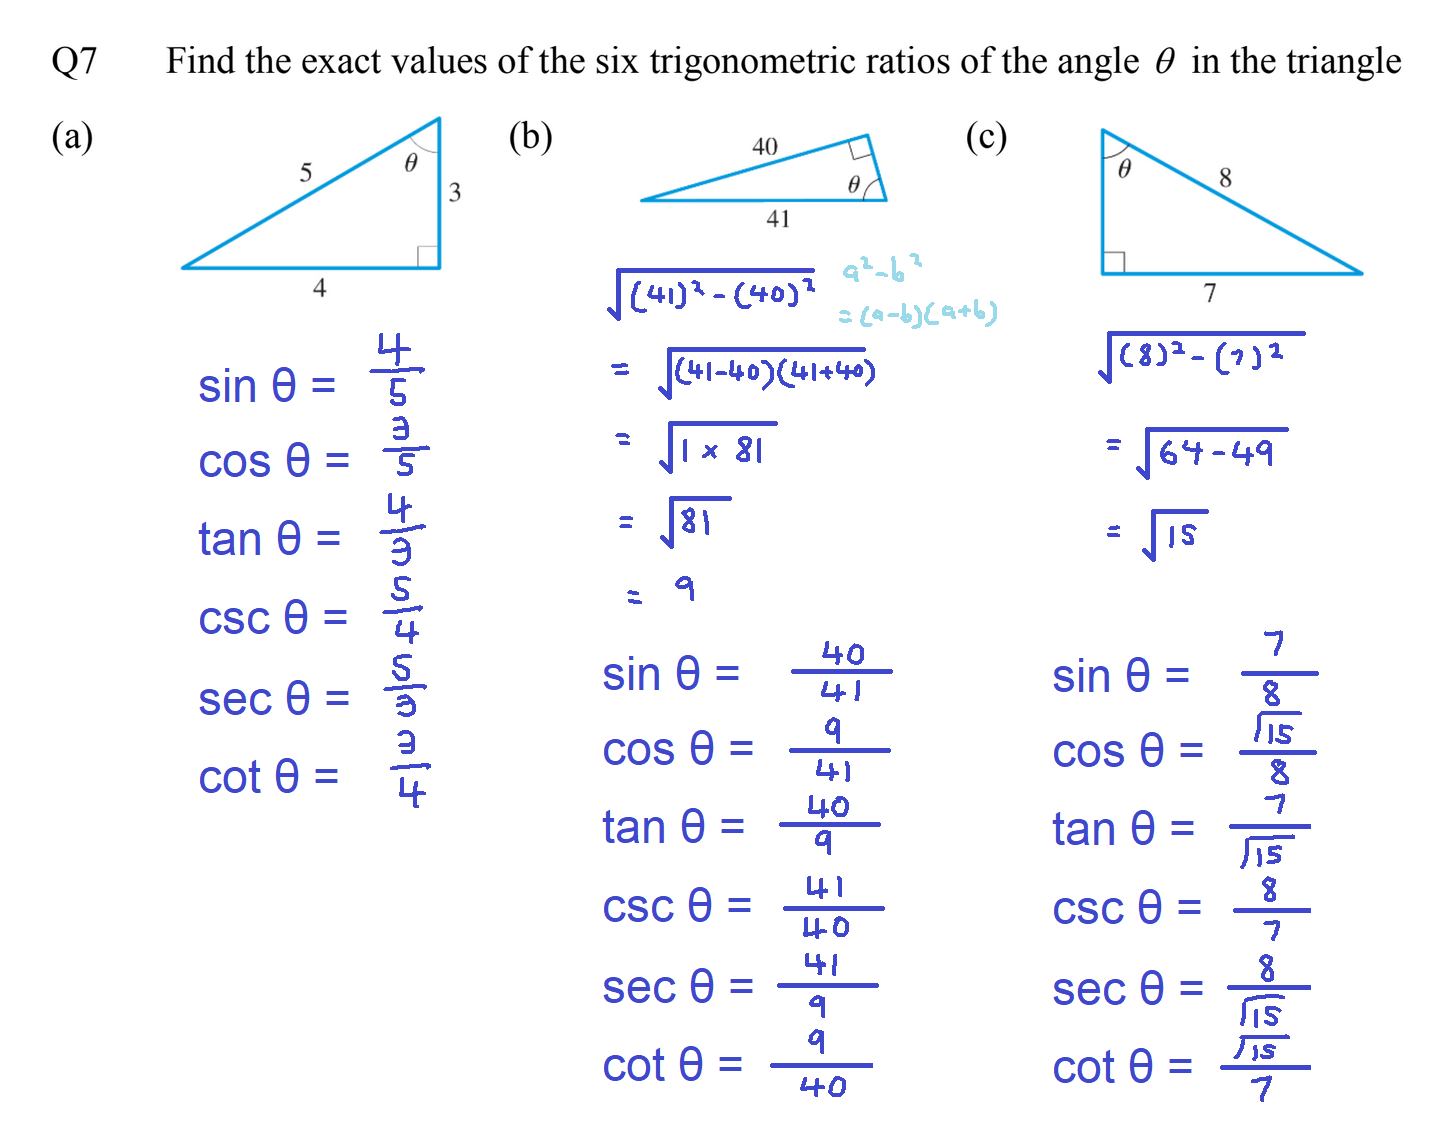 Q7 Find the exact values of the six trigonometric ratios of the angle θ in the triangle
(a)
5
θ
3
4
sin θ = 4/5
cos θ = 3/5
tan θ = 4/3
csc θ = 5/4
sec θ = 5/3
cot θ = 3/4
(b)
40
θ
41
√(41)² - (40)²
a² - b²
= (a-b)(a+b)
= √(41-40)(41+40)
= √1 × 81
= √81
= 9
sin θ = 40/41
cos θ = 9/41
tan θ = 40/9
csc θ = 41/40
sec θ = 41/9
cot θ = 9/40
(c)
θ
8
7
√(8)² - (7)²
= √64-49
= √15
sin θ = 7/8
cos θ = √15/8
tan θ = 7/√15
csc θ = 8/7
sec θ = 8/√15
cot θ = √15/7